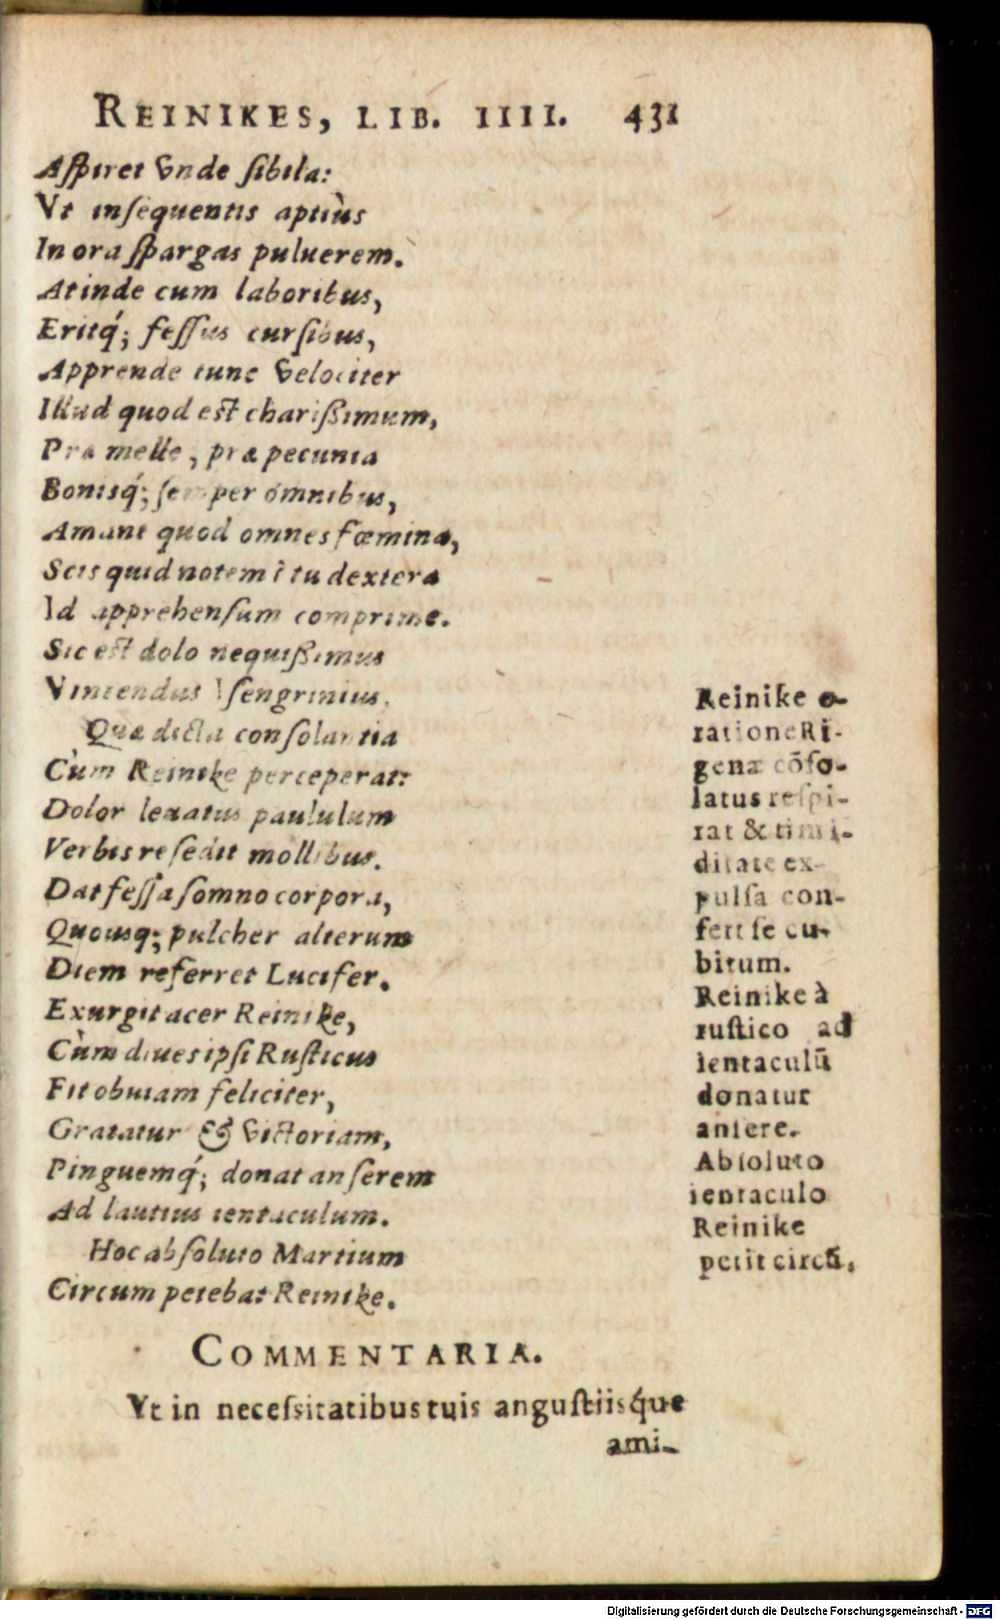 REINIKES, LIB. IIII. 431
Aſpiret vnde ſibila:
Vt inſequentis aptiùs
In ora ſpargas puluerem.
At inde cum laboribus,
Eritq́; feſſus curſibus,
Apprende tunc velociter
Illud quod eſt chariſsimum,
Præ melle, præ pecunia
Bonisq́; ſemper omnibus,
Amant quod omnes fœminæ,
Scis quid notem? tu dextera
Id apprehenſum comprime.
Sic eſt dolo nequiſsimus
Vincendus Iſengrinius.
Quæ dicta conſolantia
Cùm Reinike perceperat:
Dolor leuatus paululum
Verbis reſedit mollibus.
Dat feſſa ſomno corpora,
Quousq; pulcher alterum
Diem referret Lucifer.
Exurgit acer Reinike,
Cùm diues ipſi Ruſticus
Fit obuiam feliciter,
Gratatur & victoriam,
Pinguemq́; donat anſerem
Ad lautius ientaculum.
Hoc abſoluto Martium
Circum petebat Reinike.
Reinike o-
ratione Ri-
genæ cõſo-
latus reſpi-
rat & timi-
ditate ex-
pulſa con-
fert ſe cu-
bitum.
Reinike à
ruſtico ad
ientaculũ
donatur
anſere.
Abſoluto
ientaculo
Reinike
petit circũ.
COMMENTARIA.
Vt in neceſsitatibus tuis anguſtiisq́ue
ami-
Digitalisierung gefördert durch die Deutsche Forschungsgemeinschaft - DFG